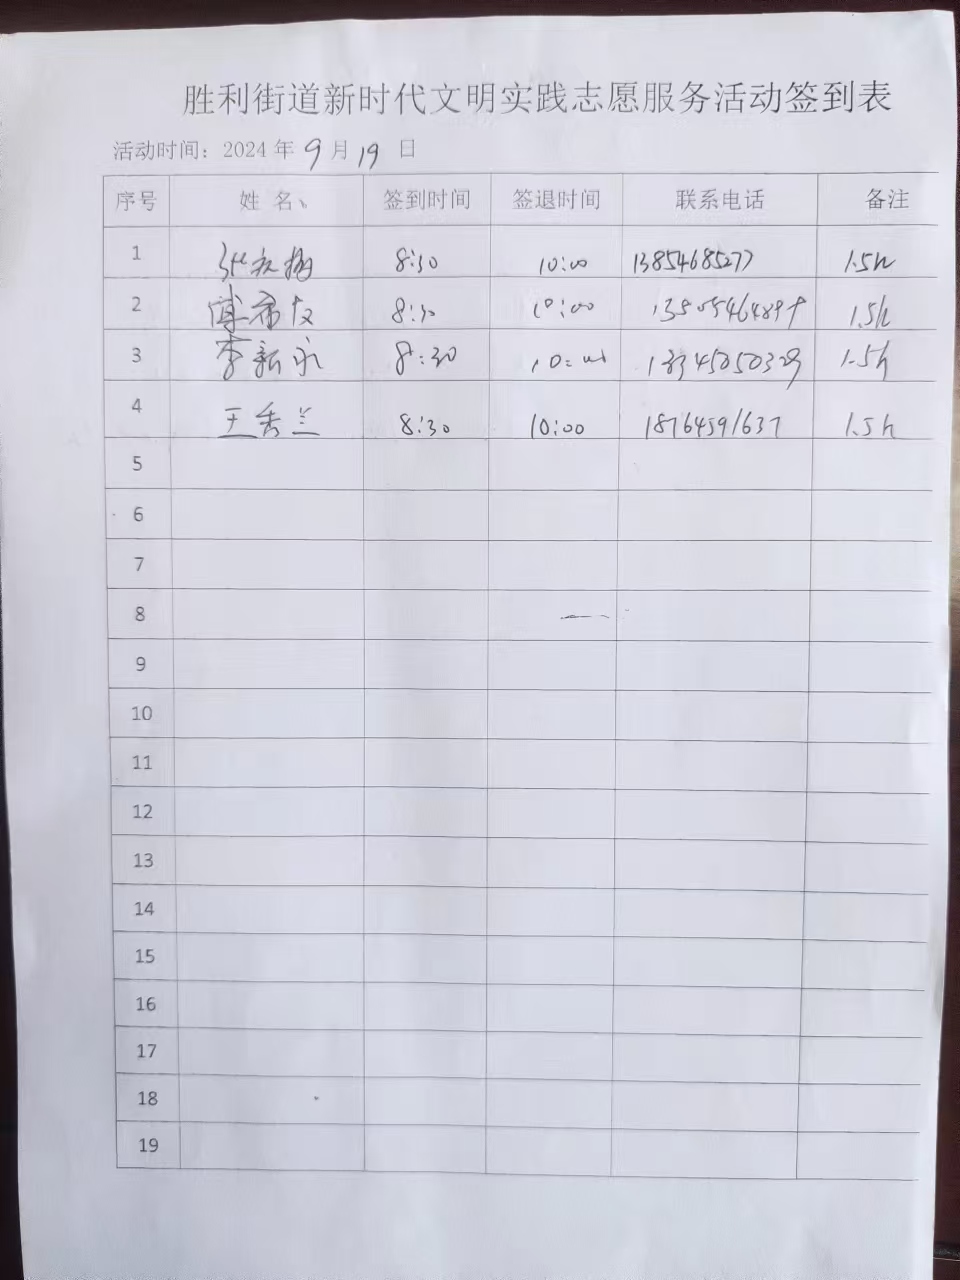 胜利街道新时代文明实践志愿服务活动签到表
活动时间：2024年9月19日
序号 姓 名、 签到时间 签退时间 联系电话 备注
1 8:30 10:00 13854685277 1.5h
2 傅希友 8:30 10:00 1.5h
3 李新永 8:30 10:00 13345050329 1.5h
4 王秀兰 8:30 10:00 18764591637 1.5h
5
6
7
8
9
10
11
12
13
14
15
16
17
18
19